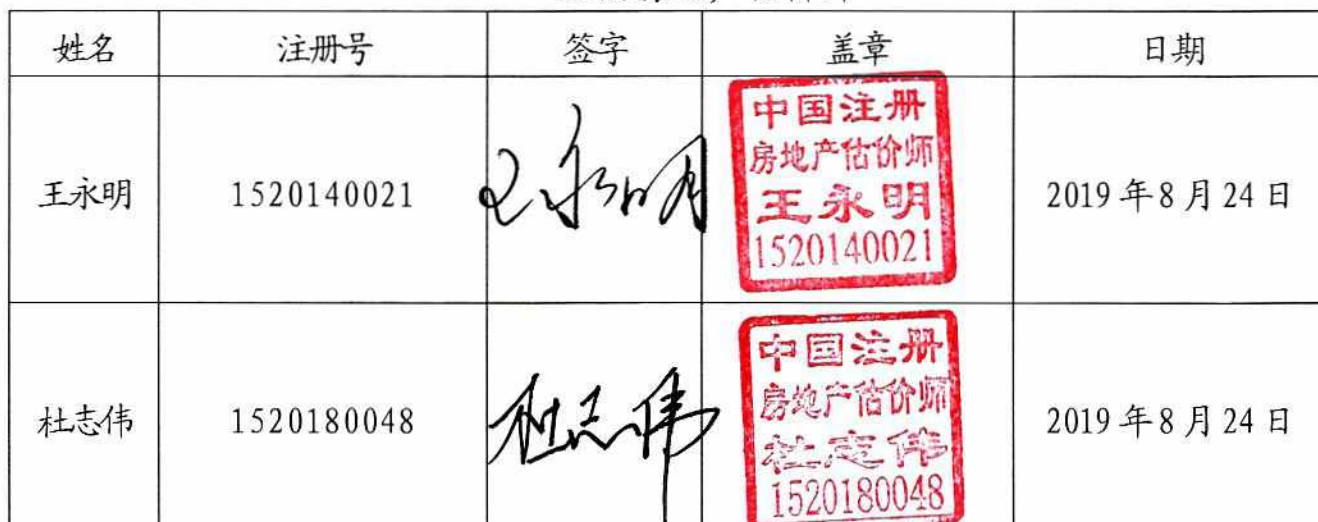 姓名 注册号 签字 盖章 日期
王永明 1520140021 王永明 中国注册
房地产估价师
王永明
1520140021 2019年8月24日
杜志伟 1520180048 杜志伟 中国注册
房地产估价师
杜志伟
1520180048 2019年8月24日